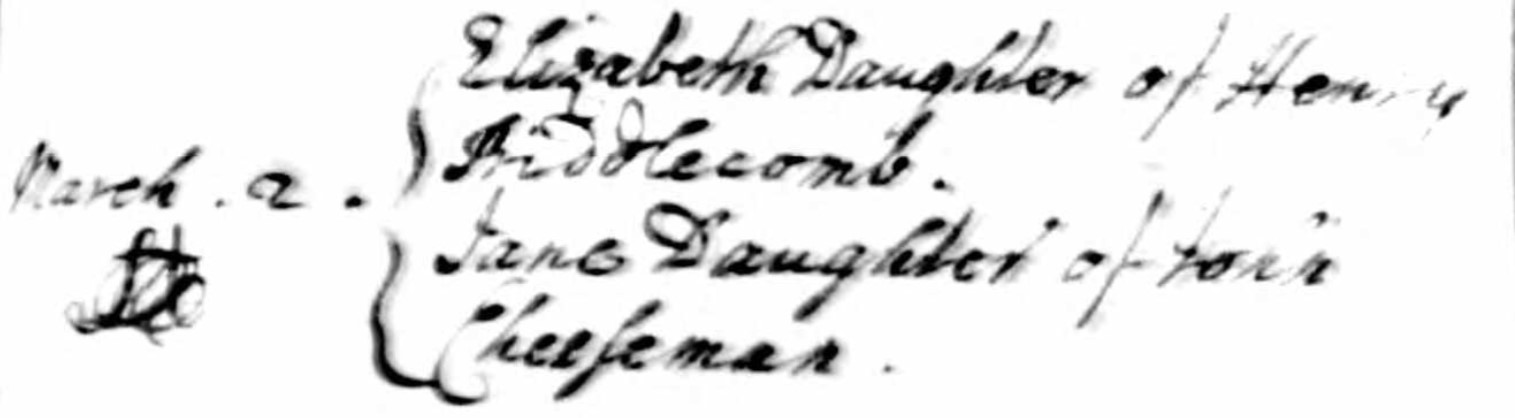 Elizabeth Daughter of Henry
Biddlecomb.
March . 2 .
Jane Daughter of John
Cheeseman .